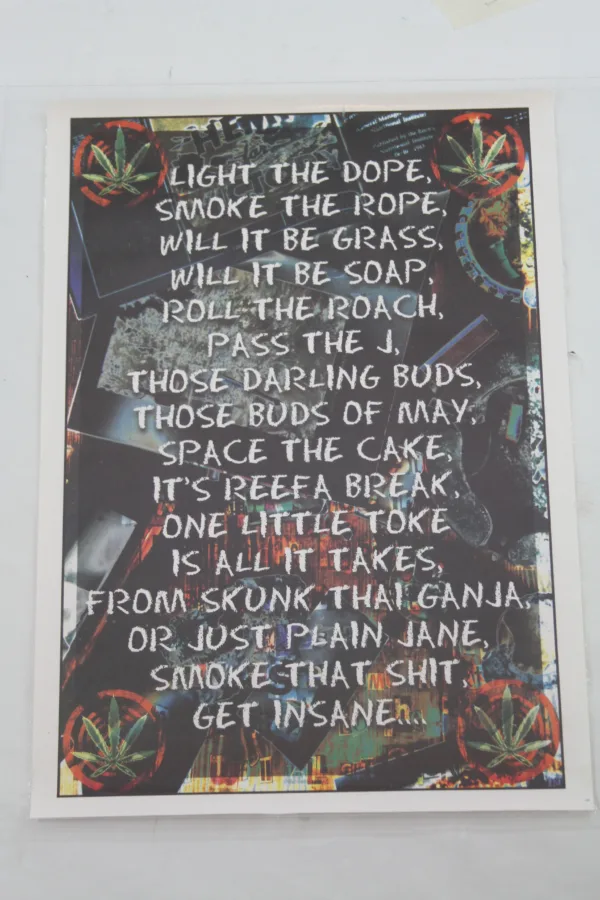 LIGHT THE DOPE,
SMOKE THE ROPE,
WILL IT BE GRASS,
WILL IT BE SOAP,
ROLL THE ROACH,
PASS THE J,
THOSE DARLING BUDS,
THOSE BUDS OF MAY,
SPACE THE CAKE,
IT'S REEFA BREAK,
ONE LITTLE TOKE
IS ALL IT TAKES,
FROM SKUNK, THAI GANJA,
OR JUST PLAIN JANE,
SMOKE THAT SHIT,
GET INSANE...